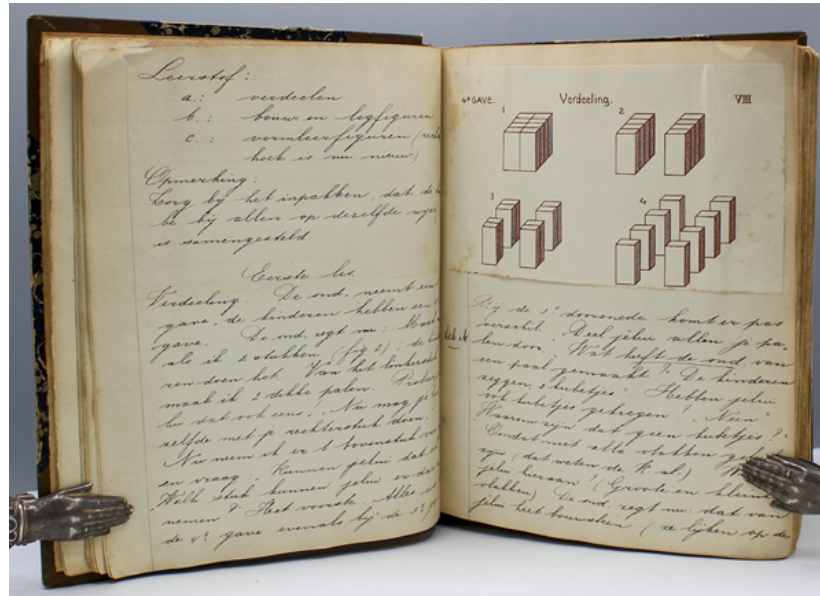 Leerstof:
a.: verdeelen
b.: bouw en legfiguren
c.: vormleerfiguren (recht
hoek is nu nieuw)
Opmerking:
Zorg bij het inpakken, dat de
be bij allen op dezelfde wijze
is samengesteld.
Eerste les.
Verdeeling. De ond. neemt een
gave, de kinderen hebben een
gave. De ond. zegt nu: Maak
als ik 2 stukken (fig 2); de
ren doen het. Van het linkerstuk
maak ik 2 dikke palen. Probeer
lui dat ook eens. Nu mag je
zelfde met je rechterstuk doen.
Nu neem ik er 1 bovenstuk
en vraag: "Kunnen jelui dat
"Welk stuk kunnen jelui er
nemen? Het voorste. Alles
de 4e gave evenals bij de 3e
4e GAVE. Verdeeling. VIII
1 2
3 4
Bij de 3e doorsnede komt er pas
verschil. Deel jelui allen je pa-
len door. Wat heeft de ond. van
een paal gemaakt? De kinderen
zeggen, 2 kubetjes. Hebben jelui
ook kubetjes gekregen? "Neen"
Waarom zijn dat geen kubetjes?
Omdat niet alle vlakken
zijn (dat weten de K. al.)
jelui hieraan? (Groote en kleine
vlakken) De ond. zegt nu: dat van
jelui heet bouwsteen (ze lijken op de